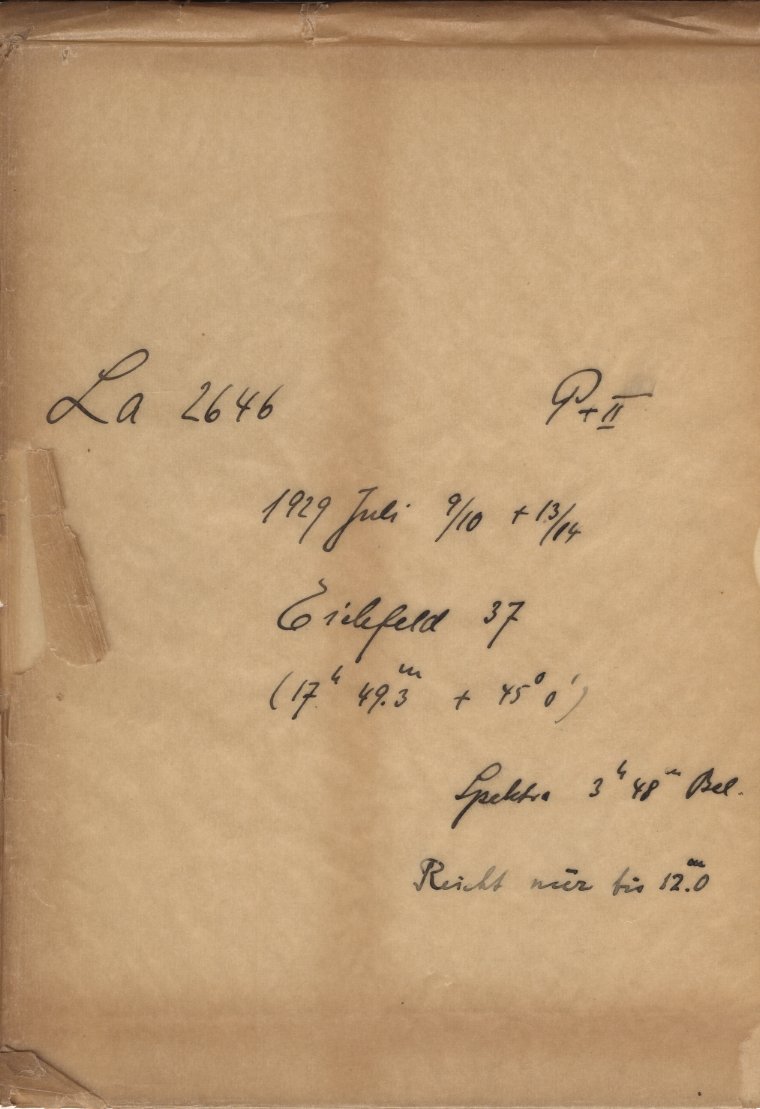 La 2646 P+II
1929 Juli 9/10 + 13/14
Eichfeld 37
(17h 49.3m + 45° 0')
Spektra 3h 48m Bel.
Reicht nur bis 12.0m